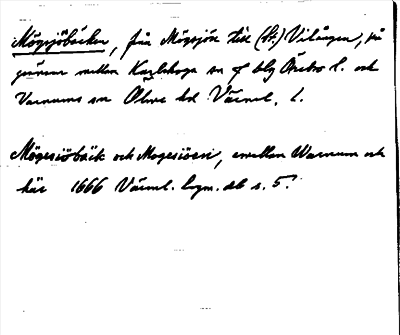 Mögsjöbäcken, från Mögsjön till (St.) Vitången, på
gränsen mellan Karlskoga sn og blg Örebro l. och
Varnums sn Ölme hd Värml. l.
Mögesiöbäck och Mogesiöen, emellan Warnum och
här 1666 Värml. lagm. db s. 5.